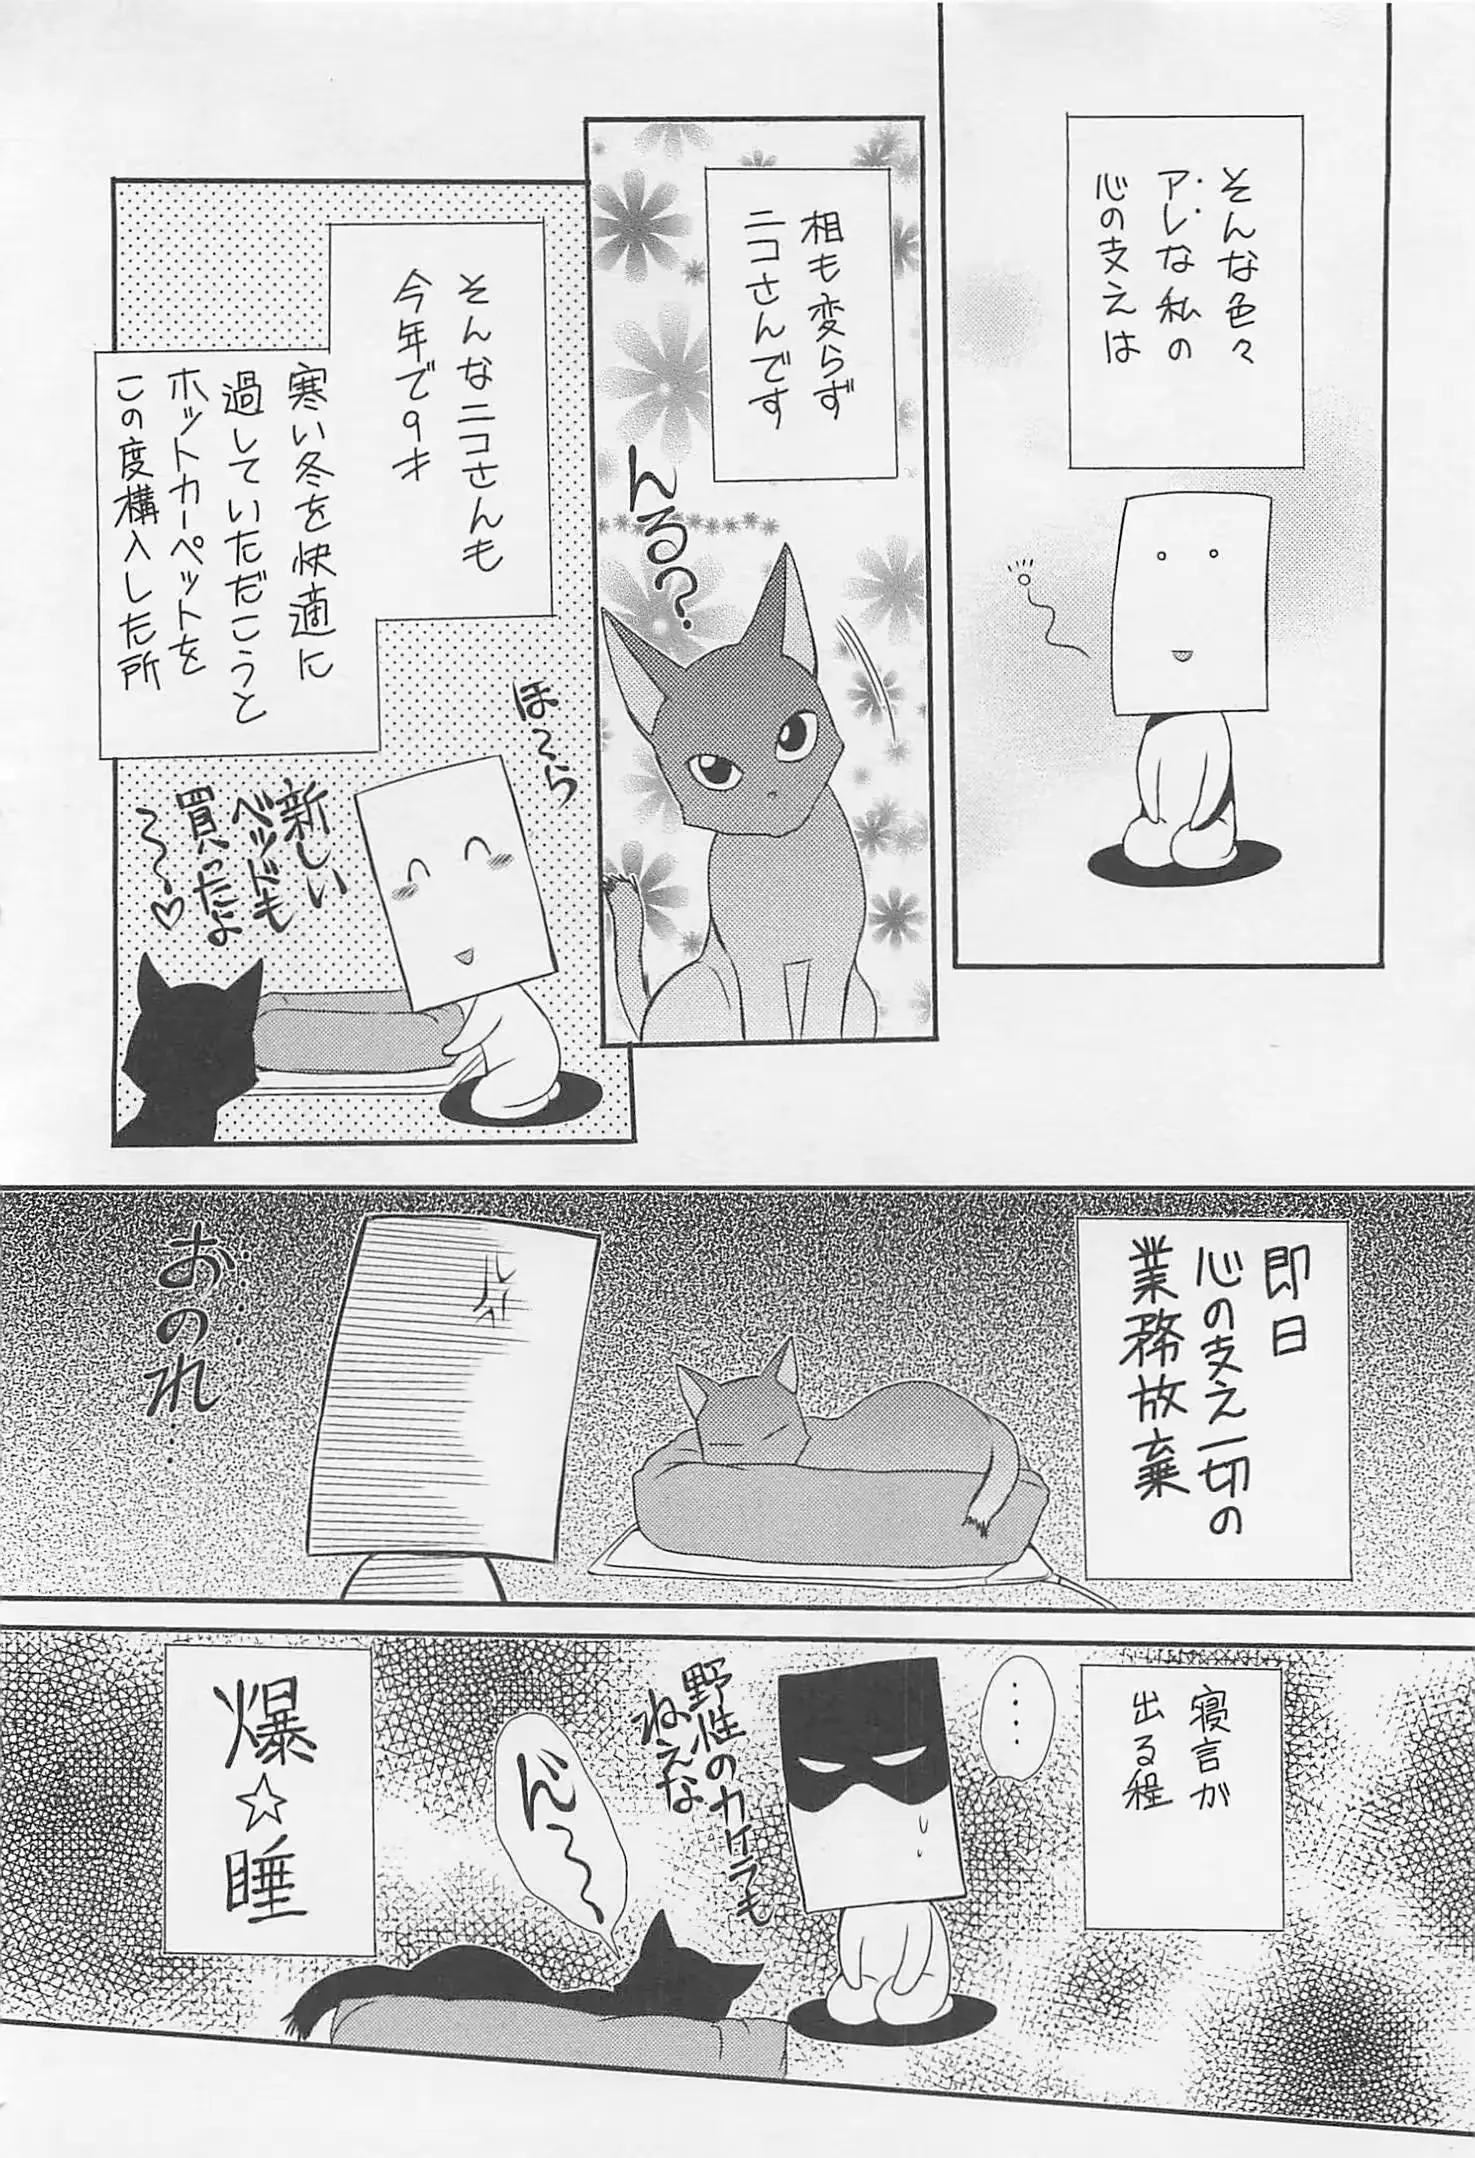 そんな色々
アレな私の
心の支えは
相も変らず
ニコさんです
んる?
そんなニコさんも
今年で9才
寒い冬を快適に
過していただこうと
ホットカーペットを
この度構入した所
ほ~ら
新しい
ベッドも
買ったよ
~~♡
即日
心の支え一切の
業務放棄
おのれ……
寝言が
出る程
……
野性のカケラも
ねえな
ん~~
爆☆睡